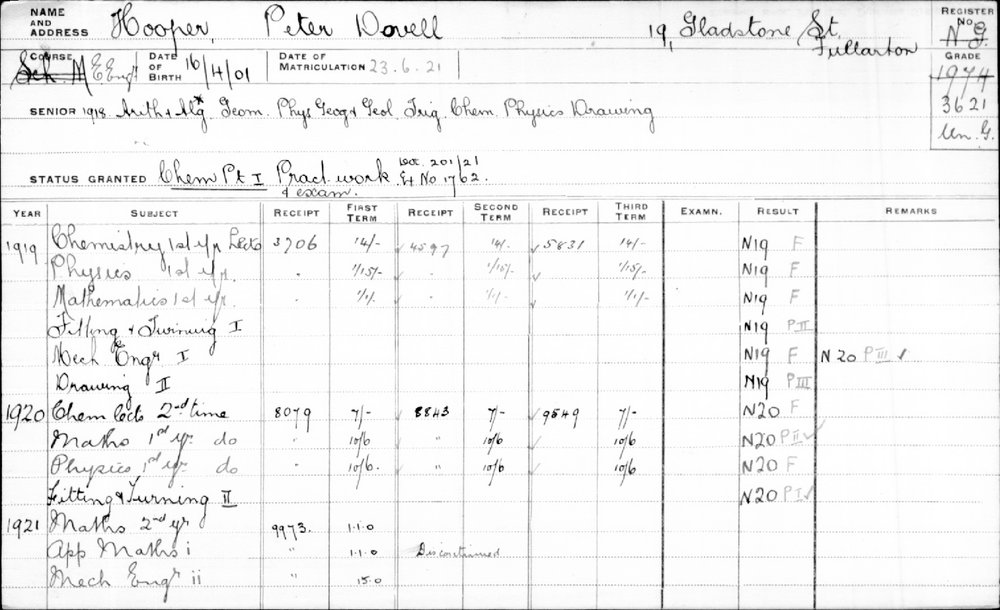 NAME AND ADDRESS Hooper, Peter Dovell 19, Gladstone St, Fullarton REGISTER No. N G.
COURSE Sch. M E Engr DATE OF BIRTH 16/4/01 DATE OF MATRICULATION 23.6.21 GRADE
1974
SENIOR 1918 Arith & Alg* Geom. Phys Geog & Geol. Trig. Chem. Physics Drawing 3621
Un. G.
STATUS GRANTED Chem Pt I Pract. work & exam. Let. 201/21 Ex No 1762.
YEAR SUBJECT RECEIPT FIRST TERM RECEIPT SECOND TERM RECEIPT THIRD TERM EXAMN. RESULT REMARKS
1919 Chemistry 1st yr Lects 3706 14/- 4597 14/- 5831 14/- N19 F
Physics 1st yr. " 1/15/- " 1/15/- 1/15/- N19 F
Mathematics 1st yr. " 1/1/- " 1/1/- 1/1/- N19 F
Fitting & Turning I N19 P II
Mech Engr I N19 F N 20 P III ✓
Drawing II N19 P III
1920 Chem Lects 2nd time 8079 7/- 8843 7/- 9549 7/- N20 F
Maths 1st yr do " 10/6 " 10/6 10/6 N20 P II ✓
Physics 1st yr do " 10/6. " 10/6 10/6 N20 F
Fitting & Turning II N20 P I ✓
1921 Maths 2nd yr 9973. 1.1.0
App Maths i " 1.1.0 Discontinued
Mech Engr ii " 15.0